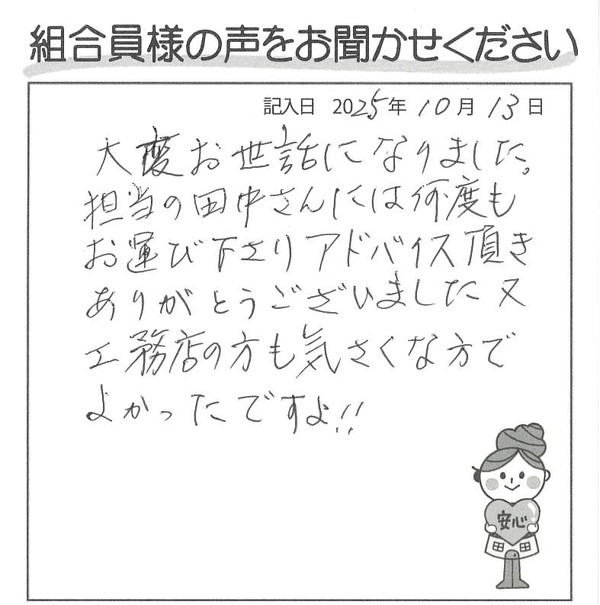 組合員様の声をお聞かせください
記入日 2025年 10月 13日
大変お世話になりました。
担当の田中さんには何度も
お運び下さりアドバイス頂き
ありがとうございました又
工務店の方も気さくな方で
よかったですよ!!
安心